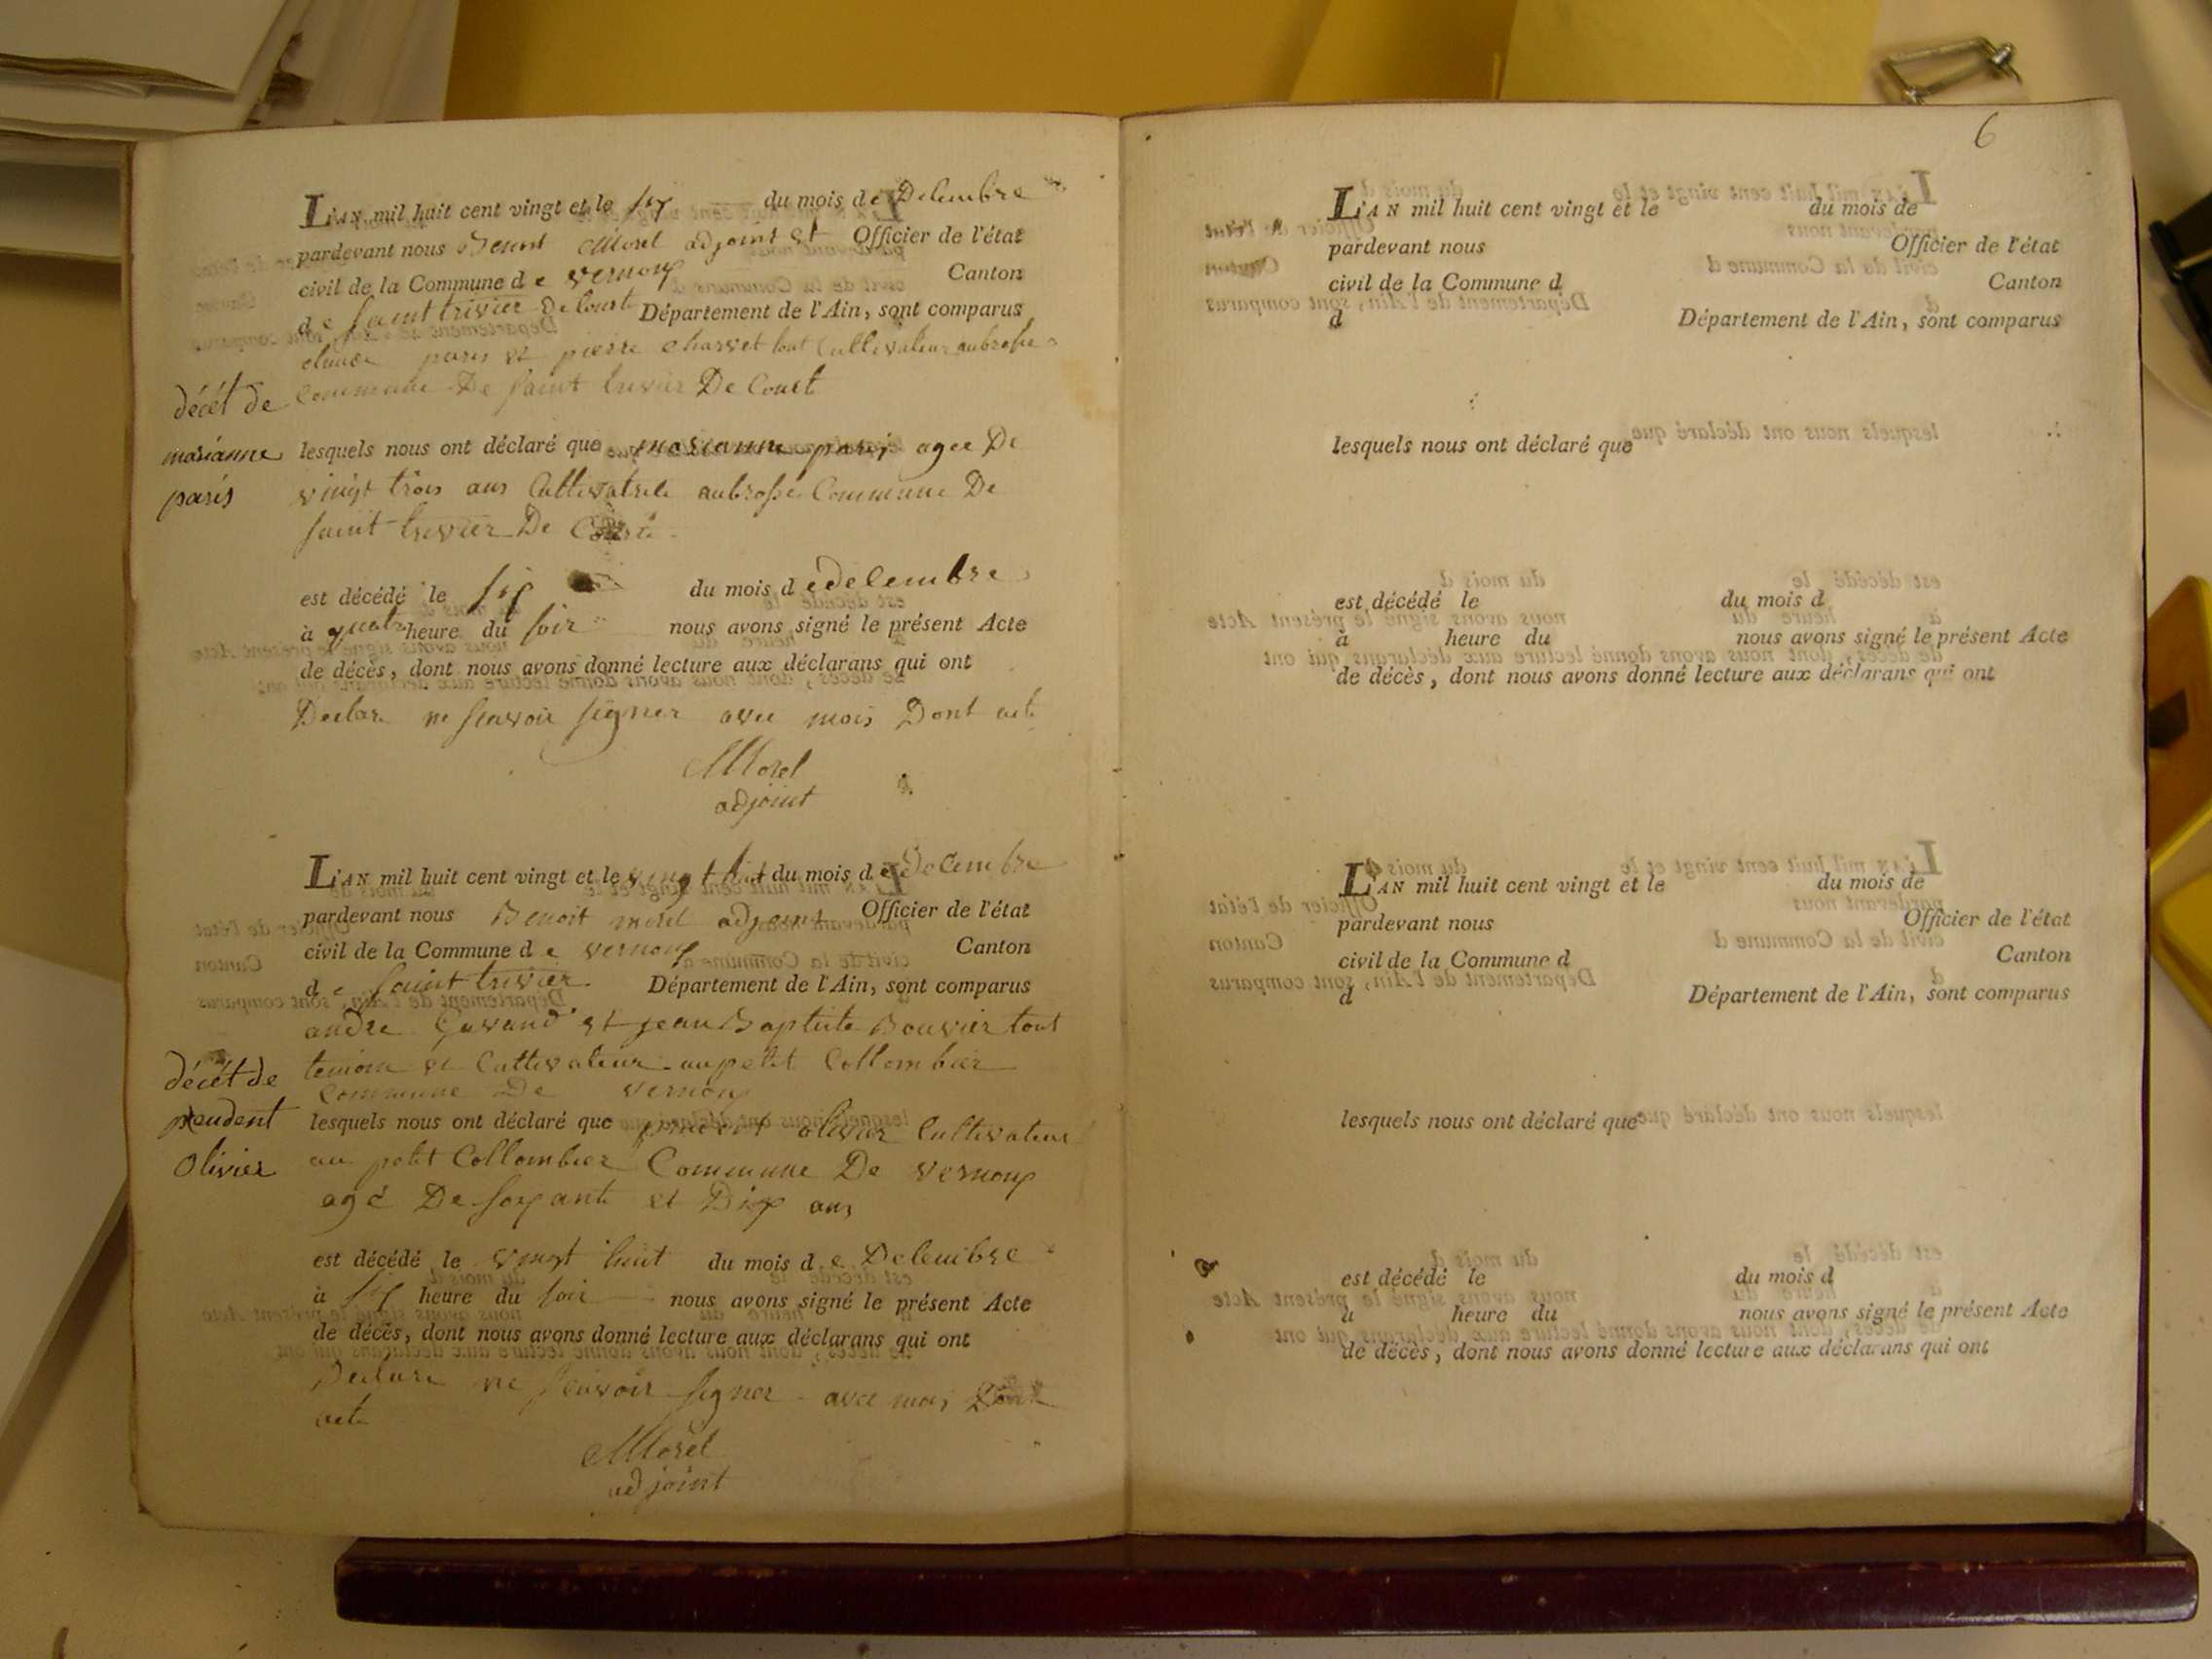 L'AN mil huit cent vingt et le six du mois de Decembre
pardevant nous Benoit Morel adjoint et Officier de l'état
civil de la Commune de vernoux Canton
de saint trivier De Court Département de l'Ain, sont comparus
paris et pierre charvet tout Cultivateur
Commune De saint trivier De Court
décét de
marianne
paris
lesquels nous ont déclaré que marianne paris agee De
vingt trois ans Commune De
saint trivier De
est décédé le six du mois de decembre
à quatre heure du soir nous avons signé le présent Acte
de décès, dont nous avons donné lecture aux déclarans qui ont
Declare ne scavoir signer avec mois Dont acte
Morel
adjoint
L'AN mil huit cent vingt et le vingt huit du mois de Decembre
pardevant nous Benoit morel adjoint Officier de l'état
civil de la Commune de vernoux Canton
de saint trivier Département de l'Ain, sont comparus
andre et jean Baptiste Bouvier tout
temoin et Cultivateur au petit Collombier
Commune De vernoux
décét de
Olivier
lesquels nous ont déclaré que olivier Cultivateur
au petit Collombier Commune De vernoux
agé De soixante et Dix ans
est décédé le vingt huit du mois de Decembre
à six heure du soir nous avons signé le présent Acte
de décès, dont nous avons donné lecture aux déclarans qui ont
Declare ne scavoir signer avec mois Dont
acte
Morel
adjoint
6
L'AN mil huit cent vingt et le du mois de
pardevant nous Officier de l'état
civil de la Commune d Canton
d Département de l'Ain, sont comparus
lesquels nous ont déclaré que
est décédé le du mois d
à heure du nous avons signé le présent Acte
de décès, dont nous avons donné lecture aux déclarans qui ont
L'AN mil huit cent vingt et le du mois de
pardevant nous Officier de l'état
civil de la Commune d Canton
d Département de l'Ain, sont comparus
lesquels nous ont déclaré que
est décédé le du mois d
à heure du nous avons signé le présent Acte
de décès, dont nous avons donné lecture aux déclarans qui ont